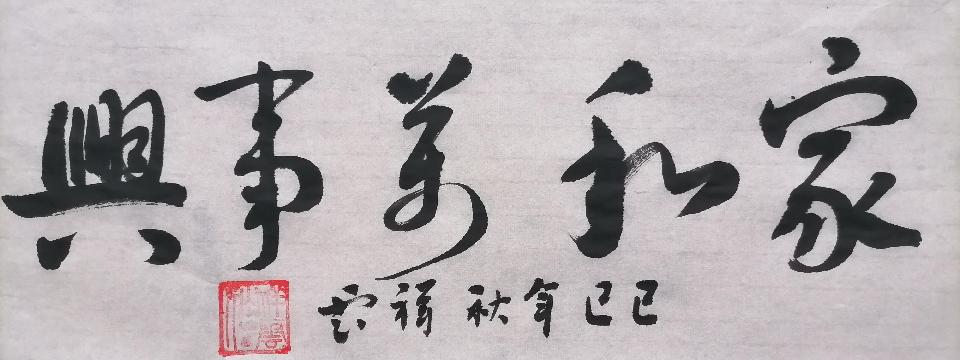 家和萬事興
己巳年秋祥雲